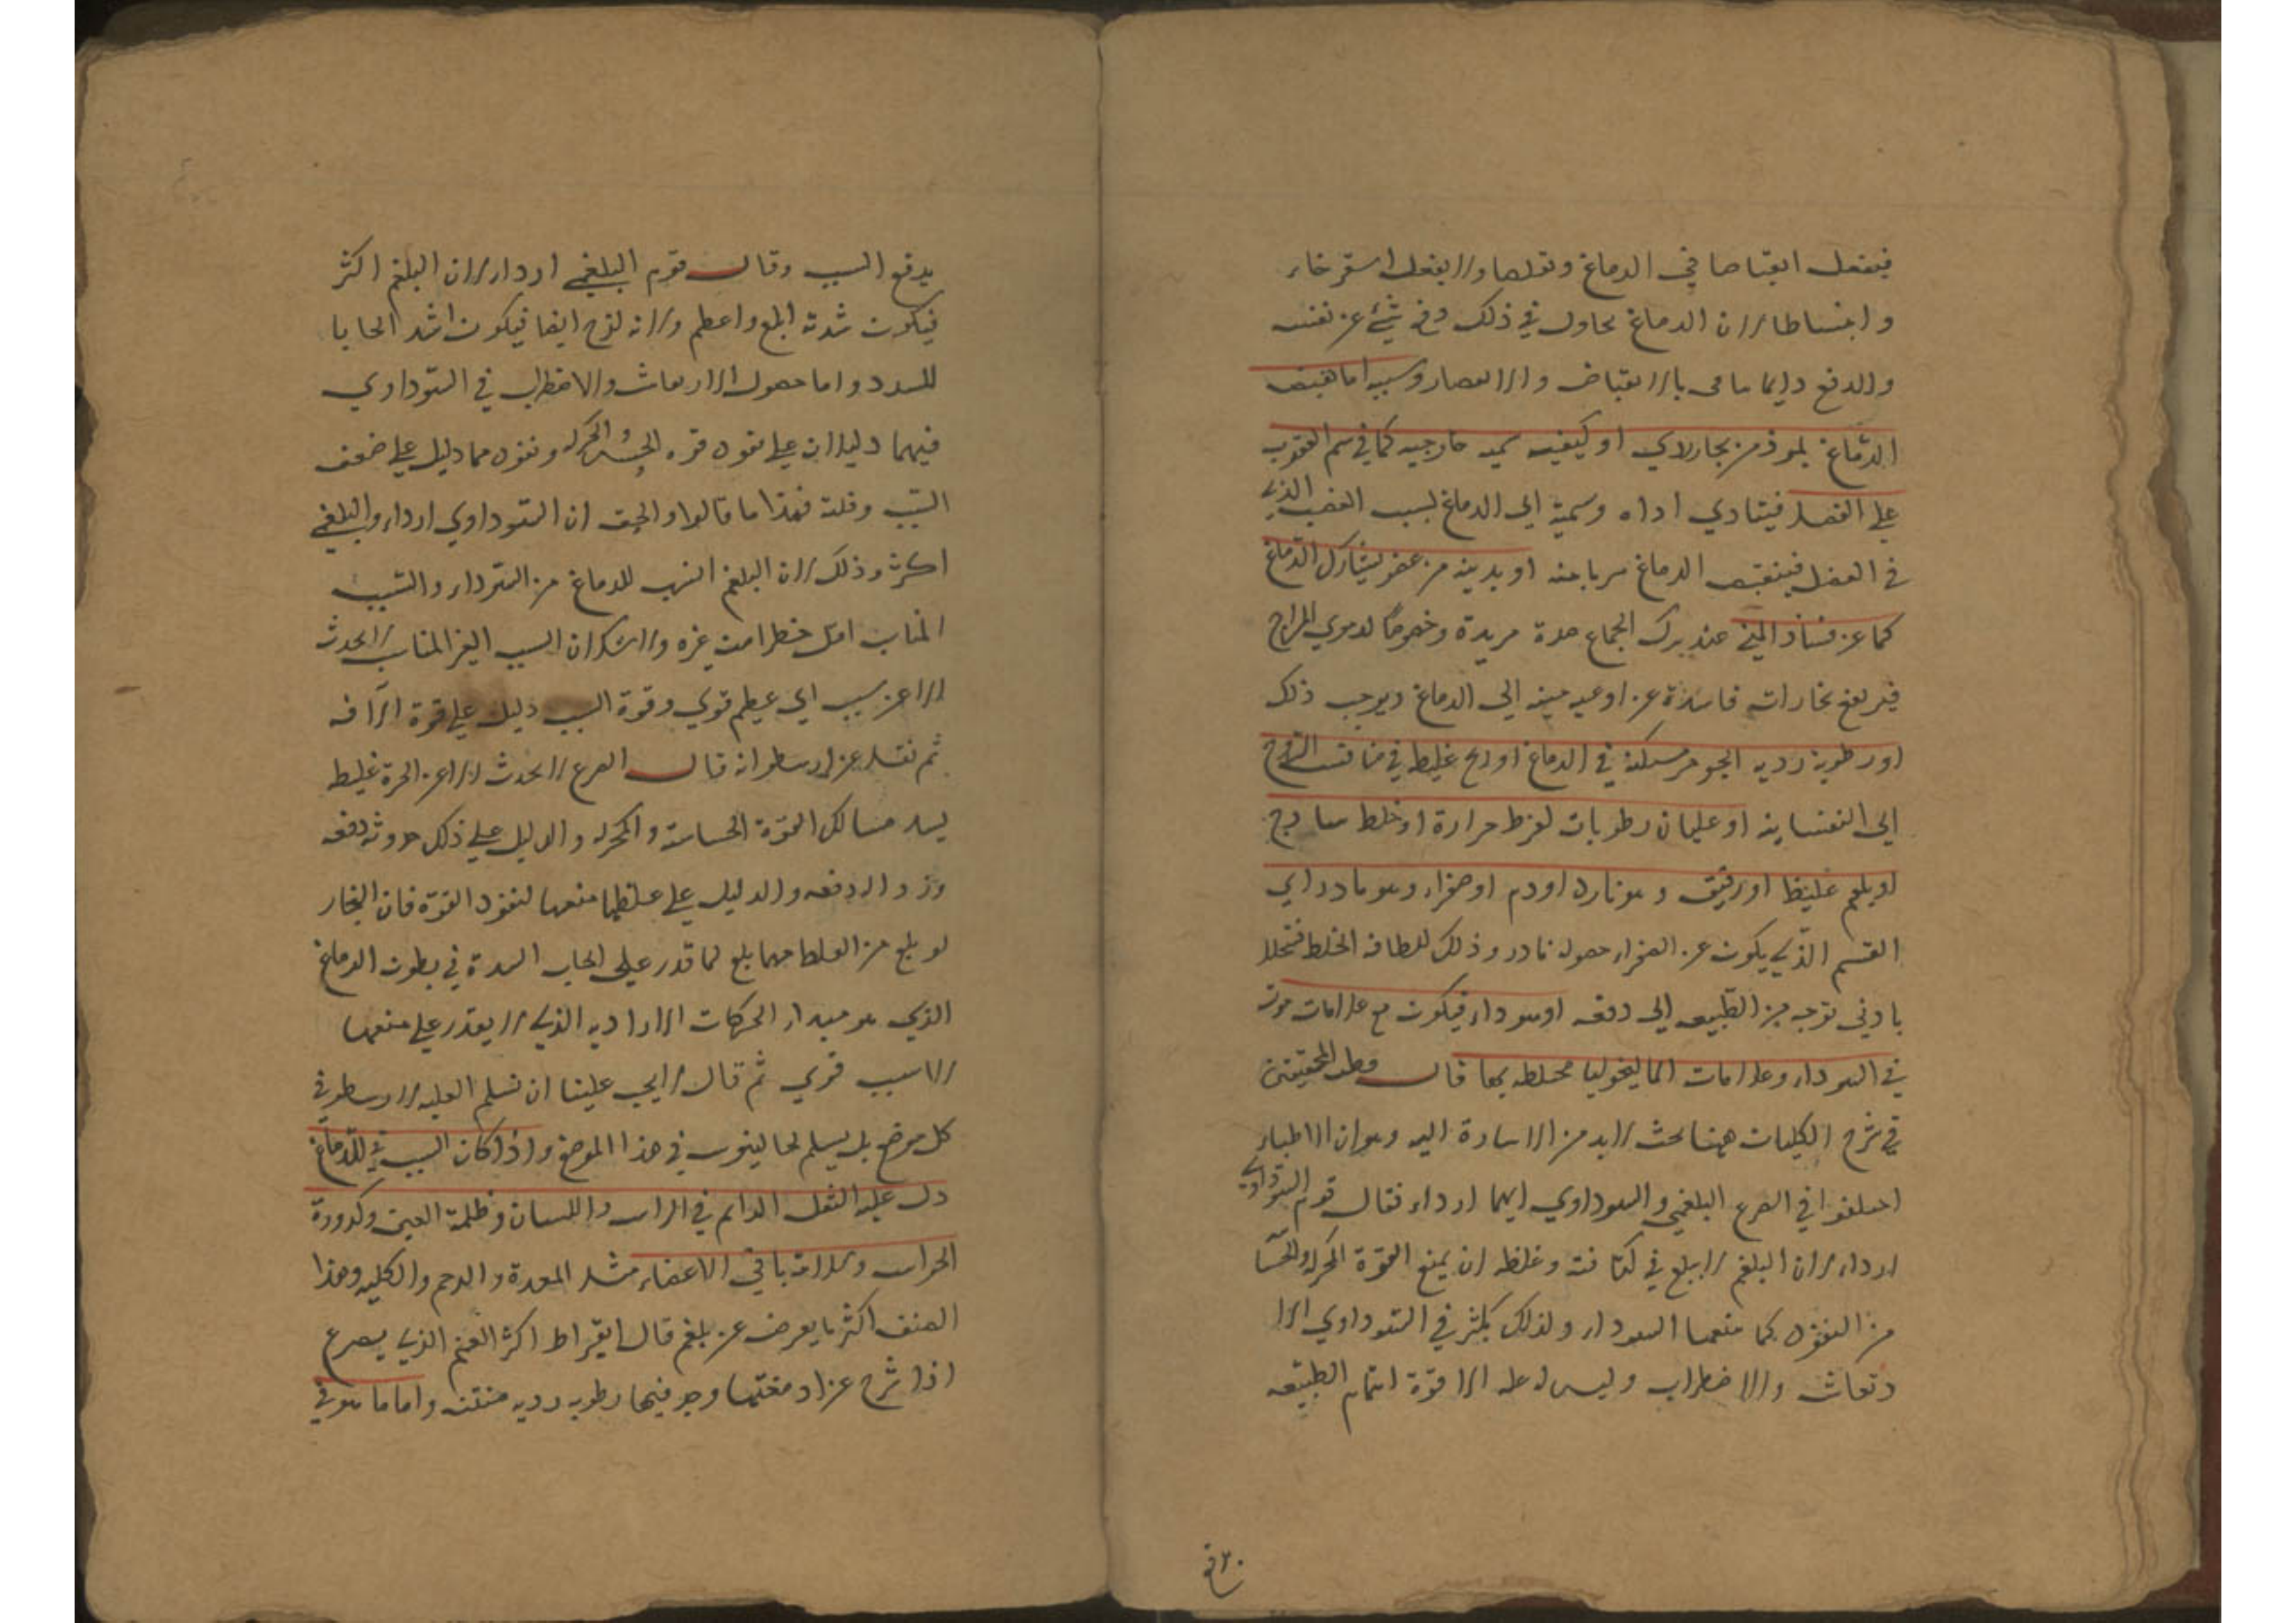 فيفعل انقباضا في الدماغ وتقلصا ولا يفعل استرخاء
وانبساطا لان الدماغ يحاول في ذلك دفع شيء عن نفسه
والدفع دايما يتاتى بالانقباض والانعصار وسببه اما تقبض
الدماغ لموذ من بخار لاذي او كيفيه سميه خارجيه كما في سم العقرب
على العضل فيتادي اداه وسميته الى الدماغ لسبب العصب الذي
في العضل فينقبض الدماغ هربا منه او بدنيه من عضو يشارك الدماغ
كما عن فساد المني عند ترك الجماع مدة مديدة وخصوصا لدموي المزاج
فيرتفع بخارات فاسدة عن اوعيه منيه الى الدماغ ويوجب ذلك
او رطوبة رديه الجوهر ممسكة في الدماغ او ريح غليظ في منافذ الروح
الى النفسانيه او غليان رطوبات لفرط حرارة او خلط ساذج
او بلغم غليظ او رقيق وهو نادر او دم او صفراء وهو نادر اي
القسم الذي يكون عن الصفراء حصوله نادر وذلك للطافه الخلط فتحلل
بادنى توجه من الطبيعه الى دفعه او سوداء فيكون مع علامات مرت
في السوداء وعلامات الماليخوليا مختلطه بها قال قطب المحققين
في شرح الكليات ههنا بحث لابد من الاشارة اليه وهو ان الاطباء
اختلفوا في الصرع البلغمي والسوداوي ايهما اردا، فقال قوم السوداوي
اردا، لان البلغم لا يبلغ في كثافته وغلظه ان يمنع القوة المحركه والحسا
من النفوذ كما منعها السوداء ولذلك يكثر في السوداوي الا
رتعاش والاضطراب وليس له عله الا قوة اهتمام الطبيعه
يدفع السبب وقال قوم البلغمي اردا، لان البلغم اكثر
فيكون شدته ابلغ واعظم ولانه لزج ايضا فيكون اشد ايجابا
للسدد واما حصول الارتعاش والاضطراب في السوداوي
فيهما دليلان على نفوذ قوه الحس والحركه ونفوذهما دليل على ضعف
السبب وقلته فهذا ما قالوا والحق ان السوداوي اردا، والبلغمي
اكثر وذلك لان البلغم انسب للدماغ من السوداء والسبب
المناسب اقل خطرا من غيره ولا شك ان السبب الغير المناسب لا يحدث
الا عن سبب اي عظيم قوي وقوة السبب دليل على قوة الآفه
ثم نقل عن ارسطو انه قال الصرع لا يحدث الا عن الحرة غليظ
يسد مسالك القوة الحساسة والمحركه والدليل على ذلك حدوثه دفعه
وزواله دفعه والدليل على غلظها منعها لنفوذ القوة فان البخار
لو بلغ من الغلظ مهما بلغ لما قدر على ايجاب السدة في بطون الدماغ
الذي هو مبداء الحركات الاراديه الذي لا يقدر على منعها
الا سبب قوي ثم قال لا يجب علينا ان نسلم العليه لارسطو في
كل موضع بل يسلم لجالينوس في هذا الموضع واذا كان السبب في الدماغ
دل عليه الثقل الدايم في الراس واللسان وظلمة العين وكدورة
الحواس وسلامة باقي الاعضاء مثل المعدة والرحم والكليه وهذا
الصنف اكثر ما يعرض عن بلغم قال ابقراط اكثر الغنم الذي يصرع
اذا شرح عن ادمغتها وجد فيها رطوبه رديه منتنه واما ما هو في